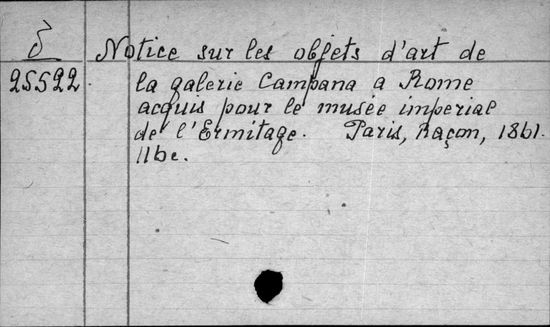 δ
25522
Notice sur les objets d'art de
la galerie Campana a Rome
acquis pour le musée imperial
de l'Ermitage. Paris, Raçon, 1861.
116c.